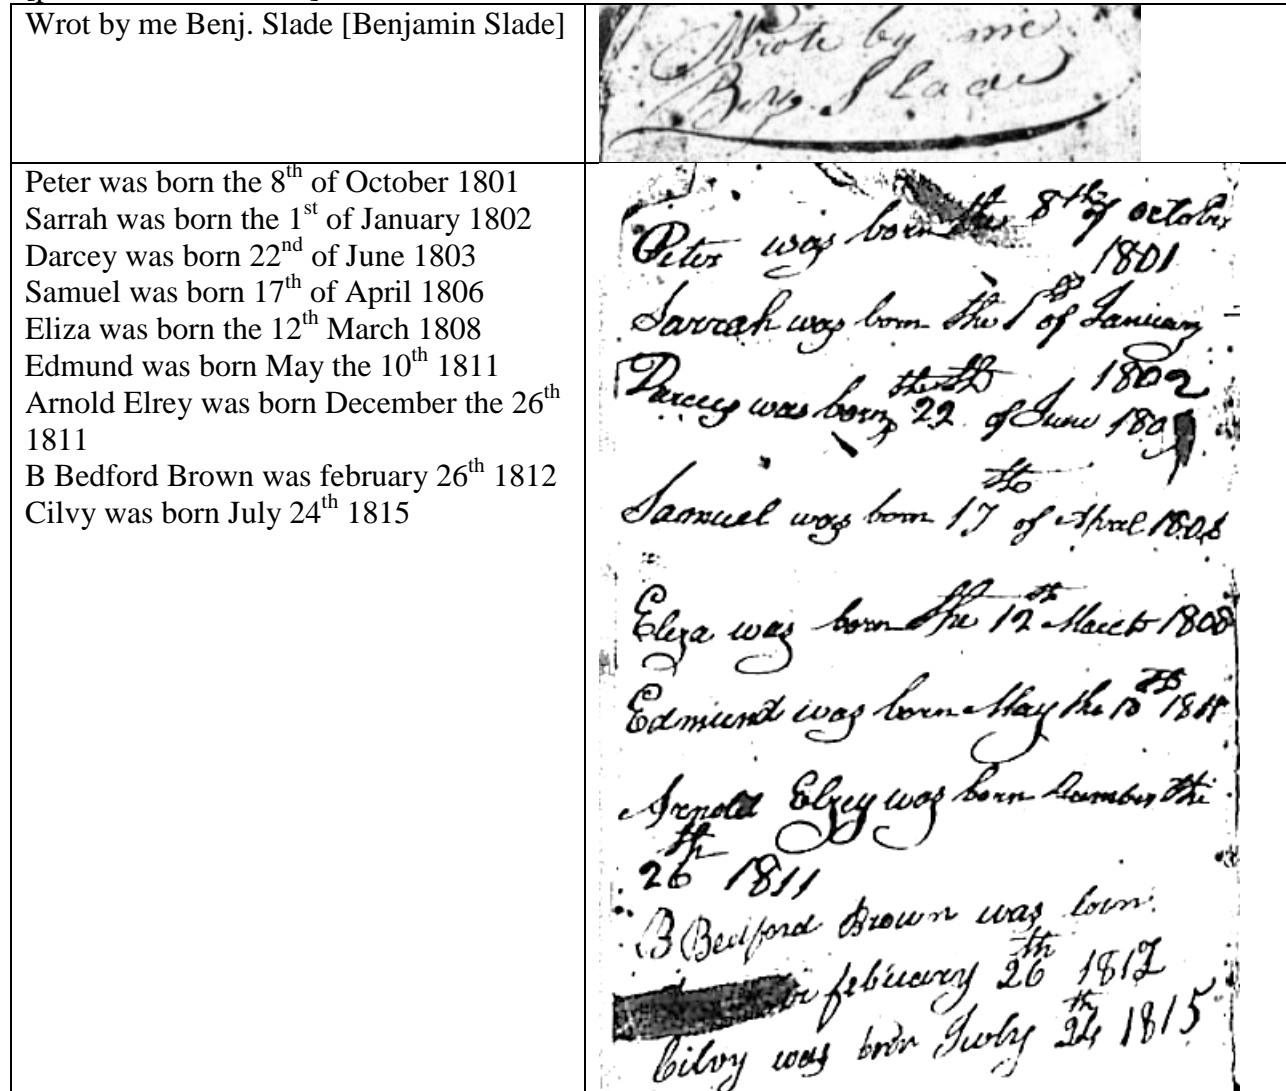 Wrot by me Benj. Slade [Benjamin Slade]
Wrote by me
Benj. Slade
Peter was born the 8th of October 1801
Sarrah was born the 1st of January 1802
Darcey was born 22nd of June 1803
Samuel was born 17th of April 1806
Eliza was born the 12th March 1808
Edmund was born May the 10th 1811
Arnold Elrey was born December the 26th
1811
B Bedford Brown was february 26th 1812
Cilvy was born July 24th 1815
Peter was born the 8th of october
1801
Sarrah was born the 1st of January
1802
Darcey was born the 22th of June 180
Samuel was born 17th of April 1806
Eliza was born the 12th March 1808
Edmund was born May the 10th 1811
Arnold Elzey was born December the
26th 1811
B Bedford Brown was born
february 26th 1812
Cilvy was born July 24th 1815